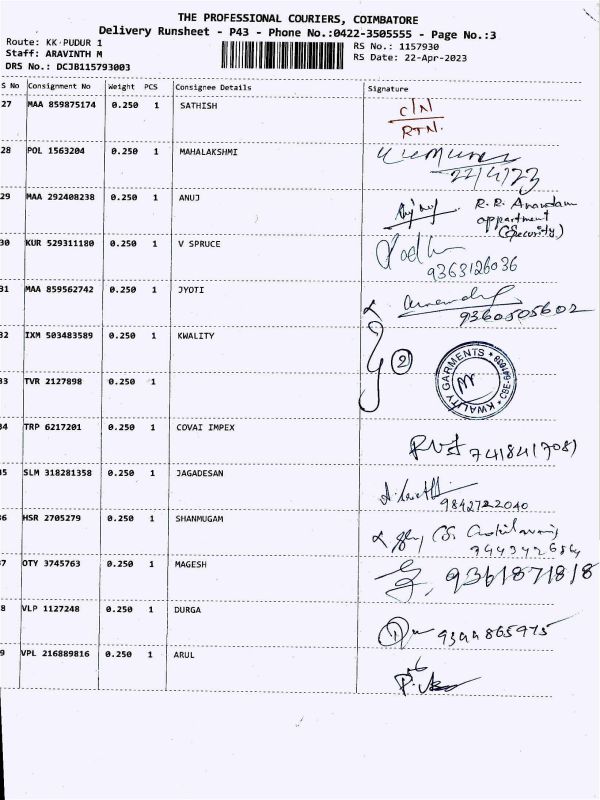 THE PROFESSIONAL COURIERS, COIMBATORE
Delivery Runsheet - P43 - Phone No.:0422-3505555 - Page No.:3
Route: KK PUDUR 1
Staff: ARAVINTH M
DRS No.: DCJB115793003
RS No.: 1157930
RS Date: 22-Apr-2023
S No Consignment No Weight PCS Consignee Details Signature
27 MAA 859875174 0.250 1 SATHISH C/N
RTN.
28 POL 1563204 0.250 1 MAHALAKSHMI
22/4/23
29 MAA 292408238 0.250 1 ANUJ R.R. Anandam
appartment
(Security)
30 KUR 529311180 0.250 1 V SPRUCE
9363126036
31 MAA 859562742 0.250 1 JYOTI
9360505602
32 IXM 503483589 0.250 1 KWALITY 2
KWALITY GARMENTS
33 TVR 2127898 0.250 1
34 TRP 6217201 0.250 1 COVAI IMPEX
7418417081
35 SLM 318281358 0.250 1 JAGADESAN
9842722040
36 HSR 2705279 0.250 1 SHANMUGAM
37 OTY 3745763 0.250 1 MAGESH 9361871818
8 VLP 1127248 0.250 1 DURGA 9344865975
9 VPL 216889816 0.250 1 ARUL